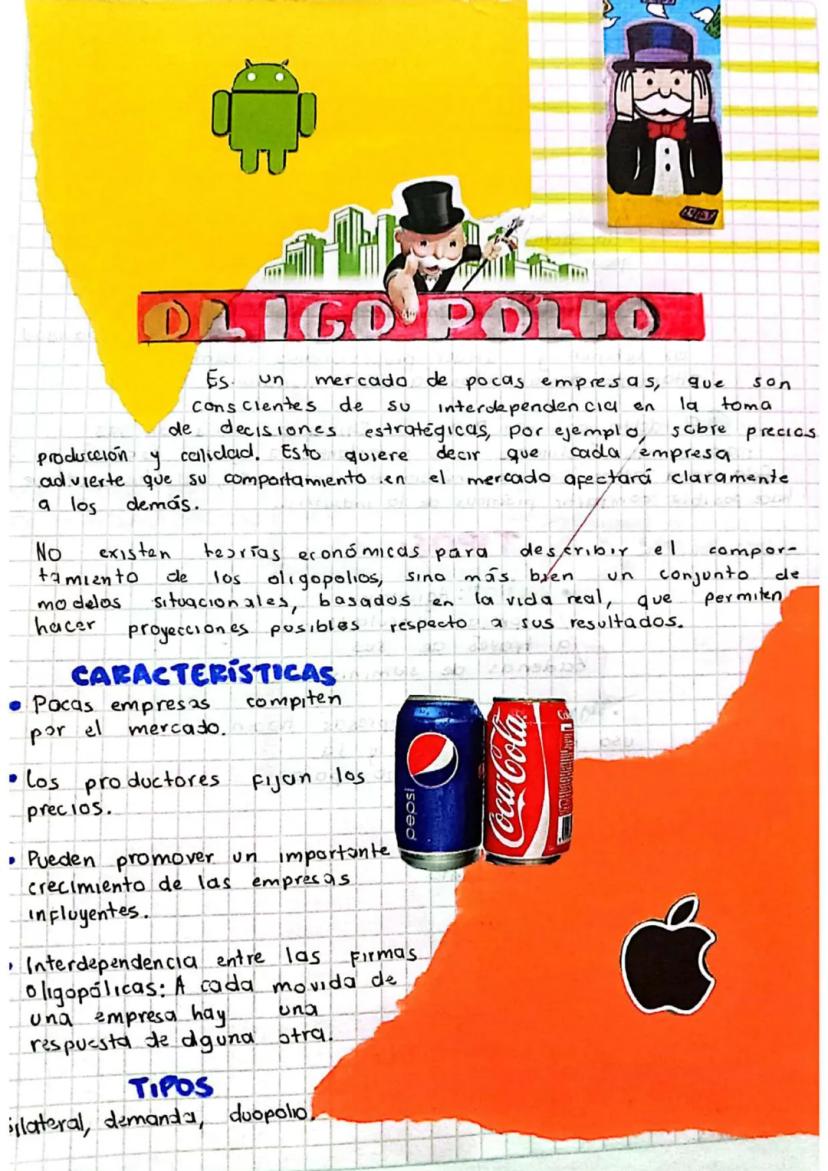 OLIGOPOLIO
Es un mercado de pocas empresas, que son
conscientes de su interdependencia en la toma
de decisiones estratégicas, por ejemplo, sobre precios
producción y calidad. Esto quiere decir que cada empresa
advierte que su comportamiento en el mercado afectará claramente
a los demás.
No existen teorías económicas para describir el compor-
tamiento de los oligopolios, sino más bien un conjunto de
modelos situacionales, basados en la vida real, que permiten
hacer proyecciones posibles respecto a sus resultados.
CARACTERÍSTICAS
• Pocas empresas compiten
por el mercado.
• Los productores fijan los
precios.
• Pueden promover un importante
crecimiento de las empresas
influyentes.
• Interdependencia entre las firmas
oligopólicas: A cada movida de
una empresa hay una
respuesta de alguna otra.
pepsi
Coca-Cola
TIPOS
demanda, duopolio.